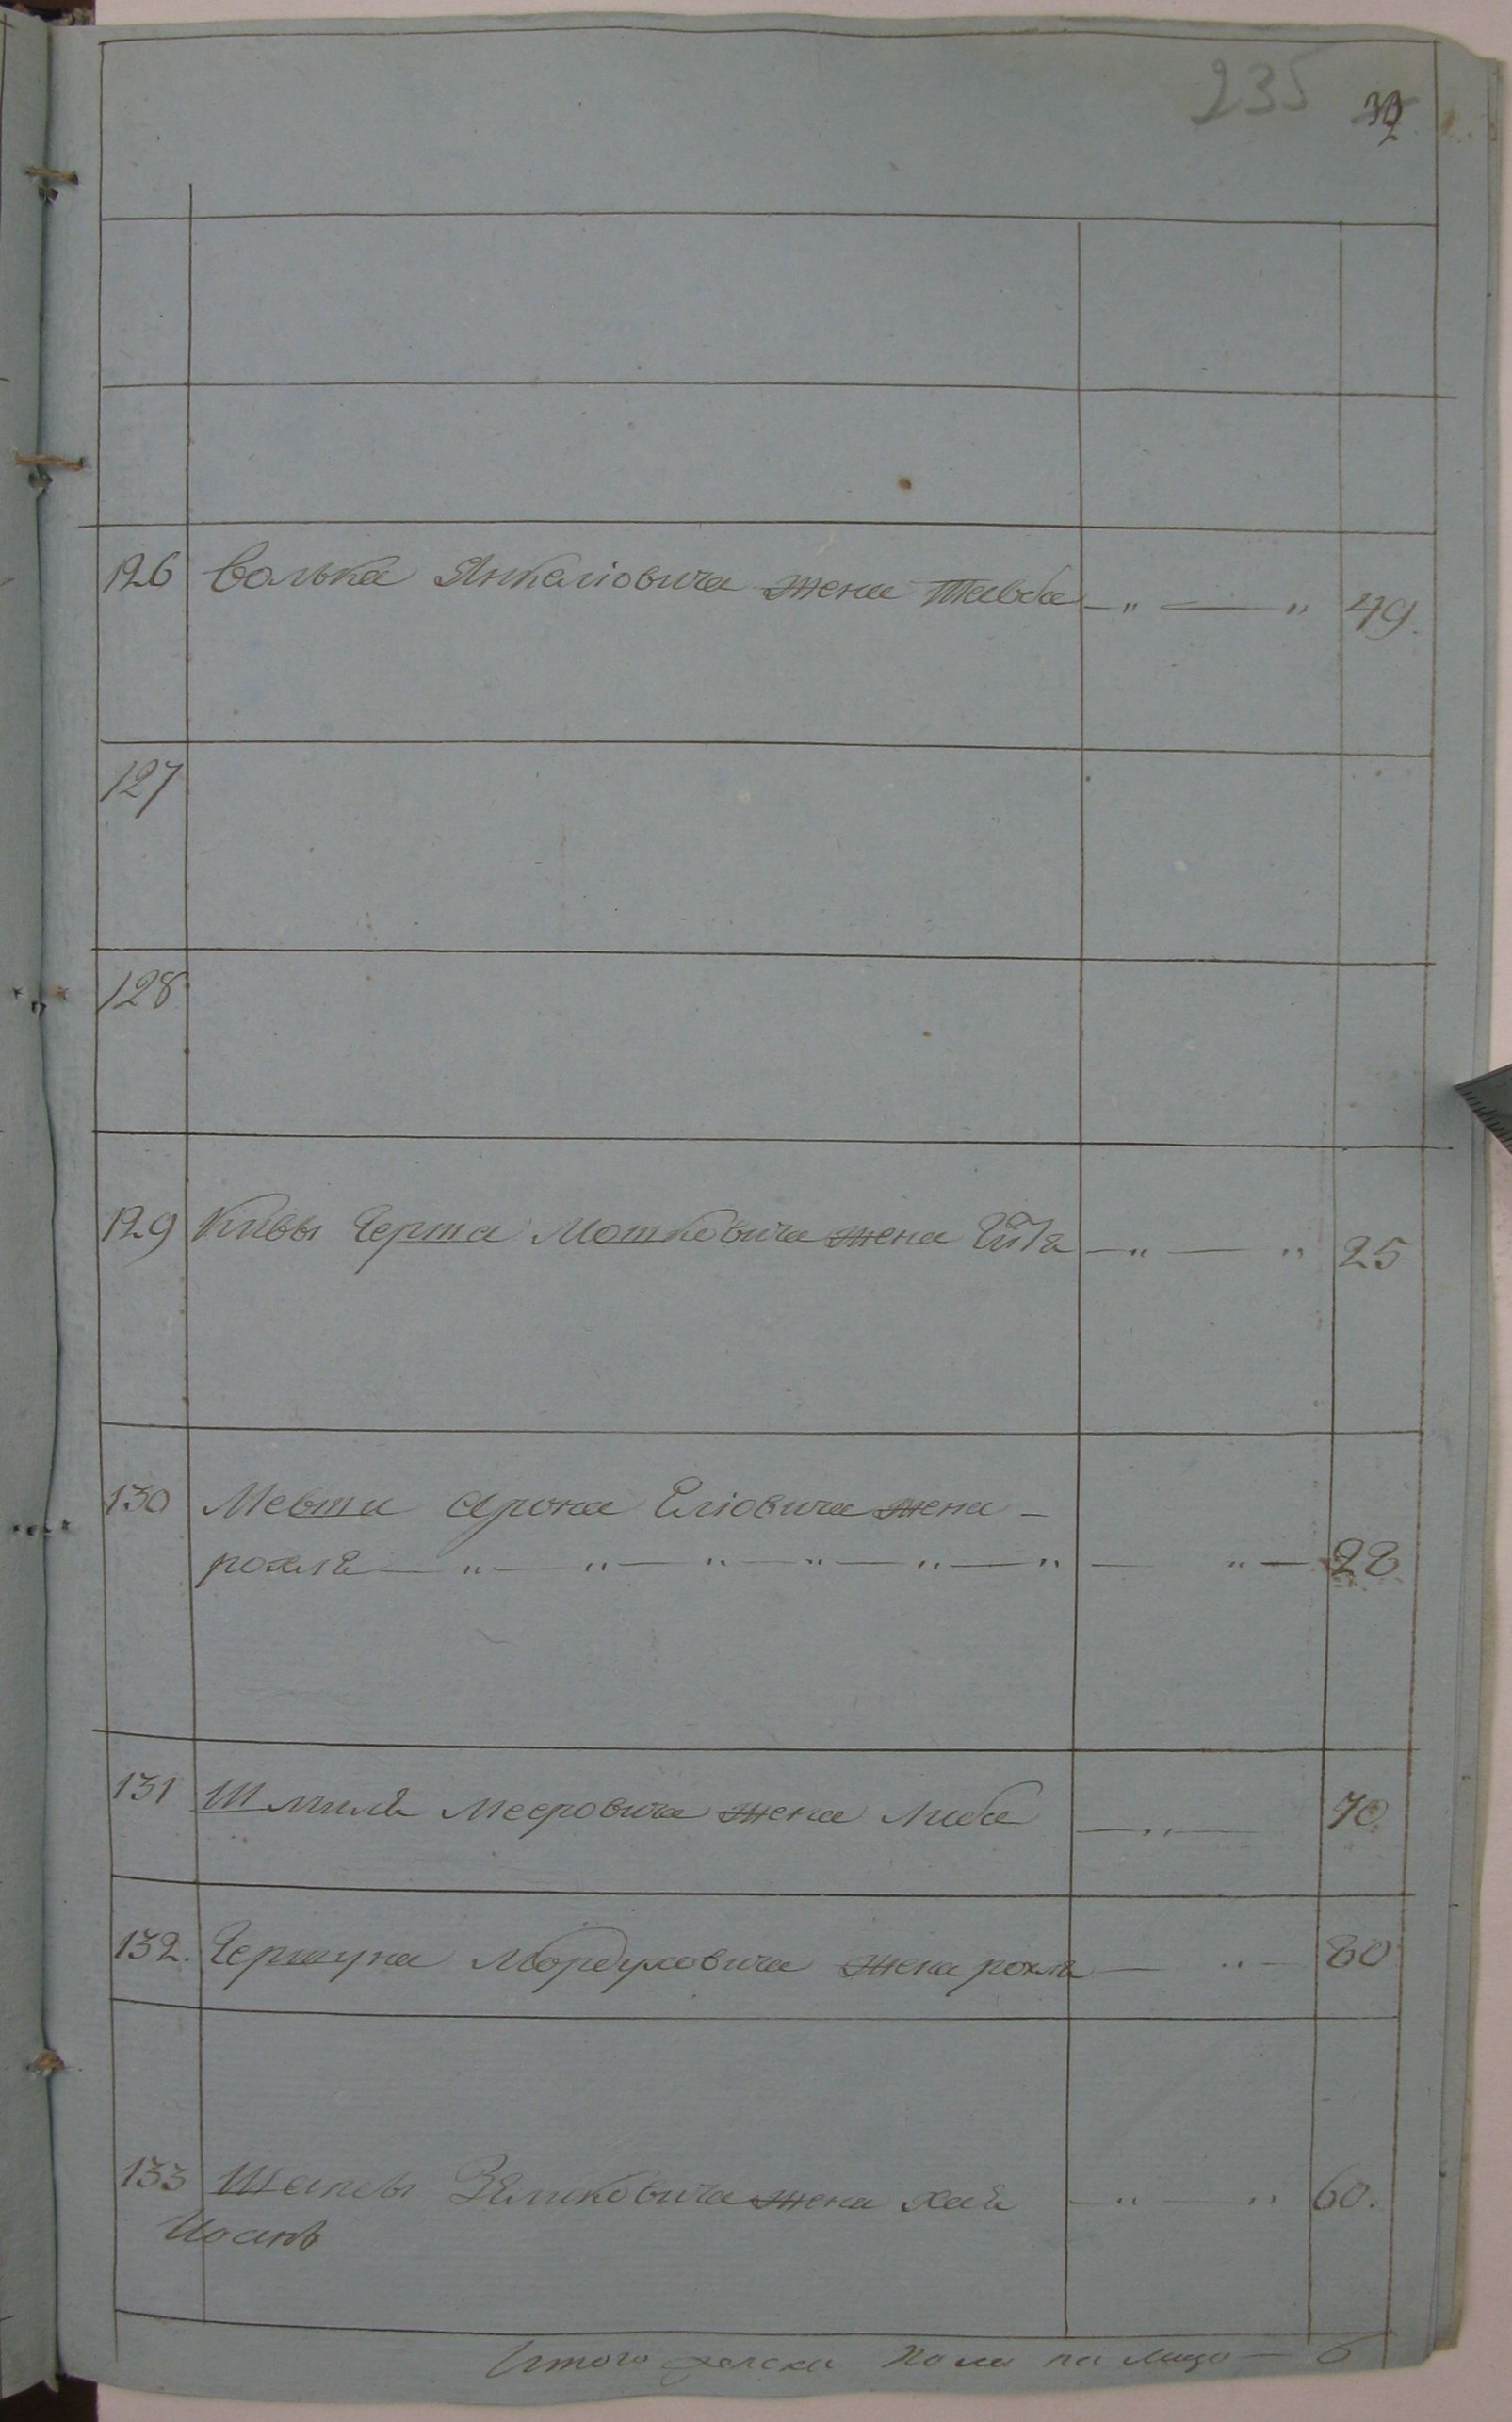 235
126 Волька Янкеліовича жена Тавба — „ — „ 49.
127
128
129 Кивы Герта Мошковича жена — „ — „ 25
130 Мевши Арона Еліовича жена —
рохля — „ — „ — „ — „ — „ — „ — „ — 28
131 Шмиля Мееровича жена Либа — „ — 70.
132. Гершуна Мордуховича жена рохля — „ — 60
133 Шапсы Зеликовича жена хая — „ — „ 60.
Итого женска Пола на лицо — 6